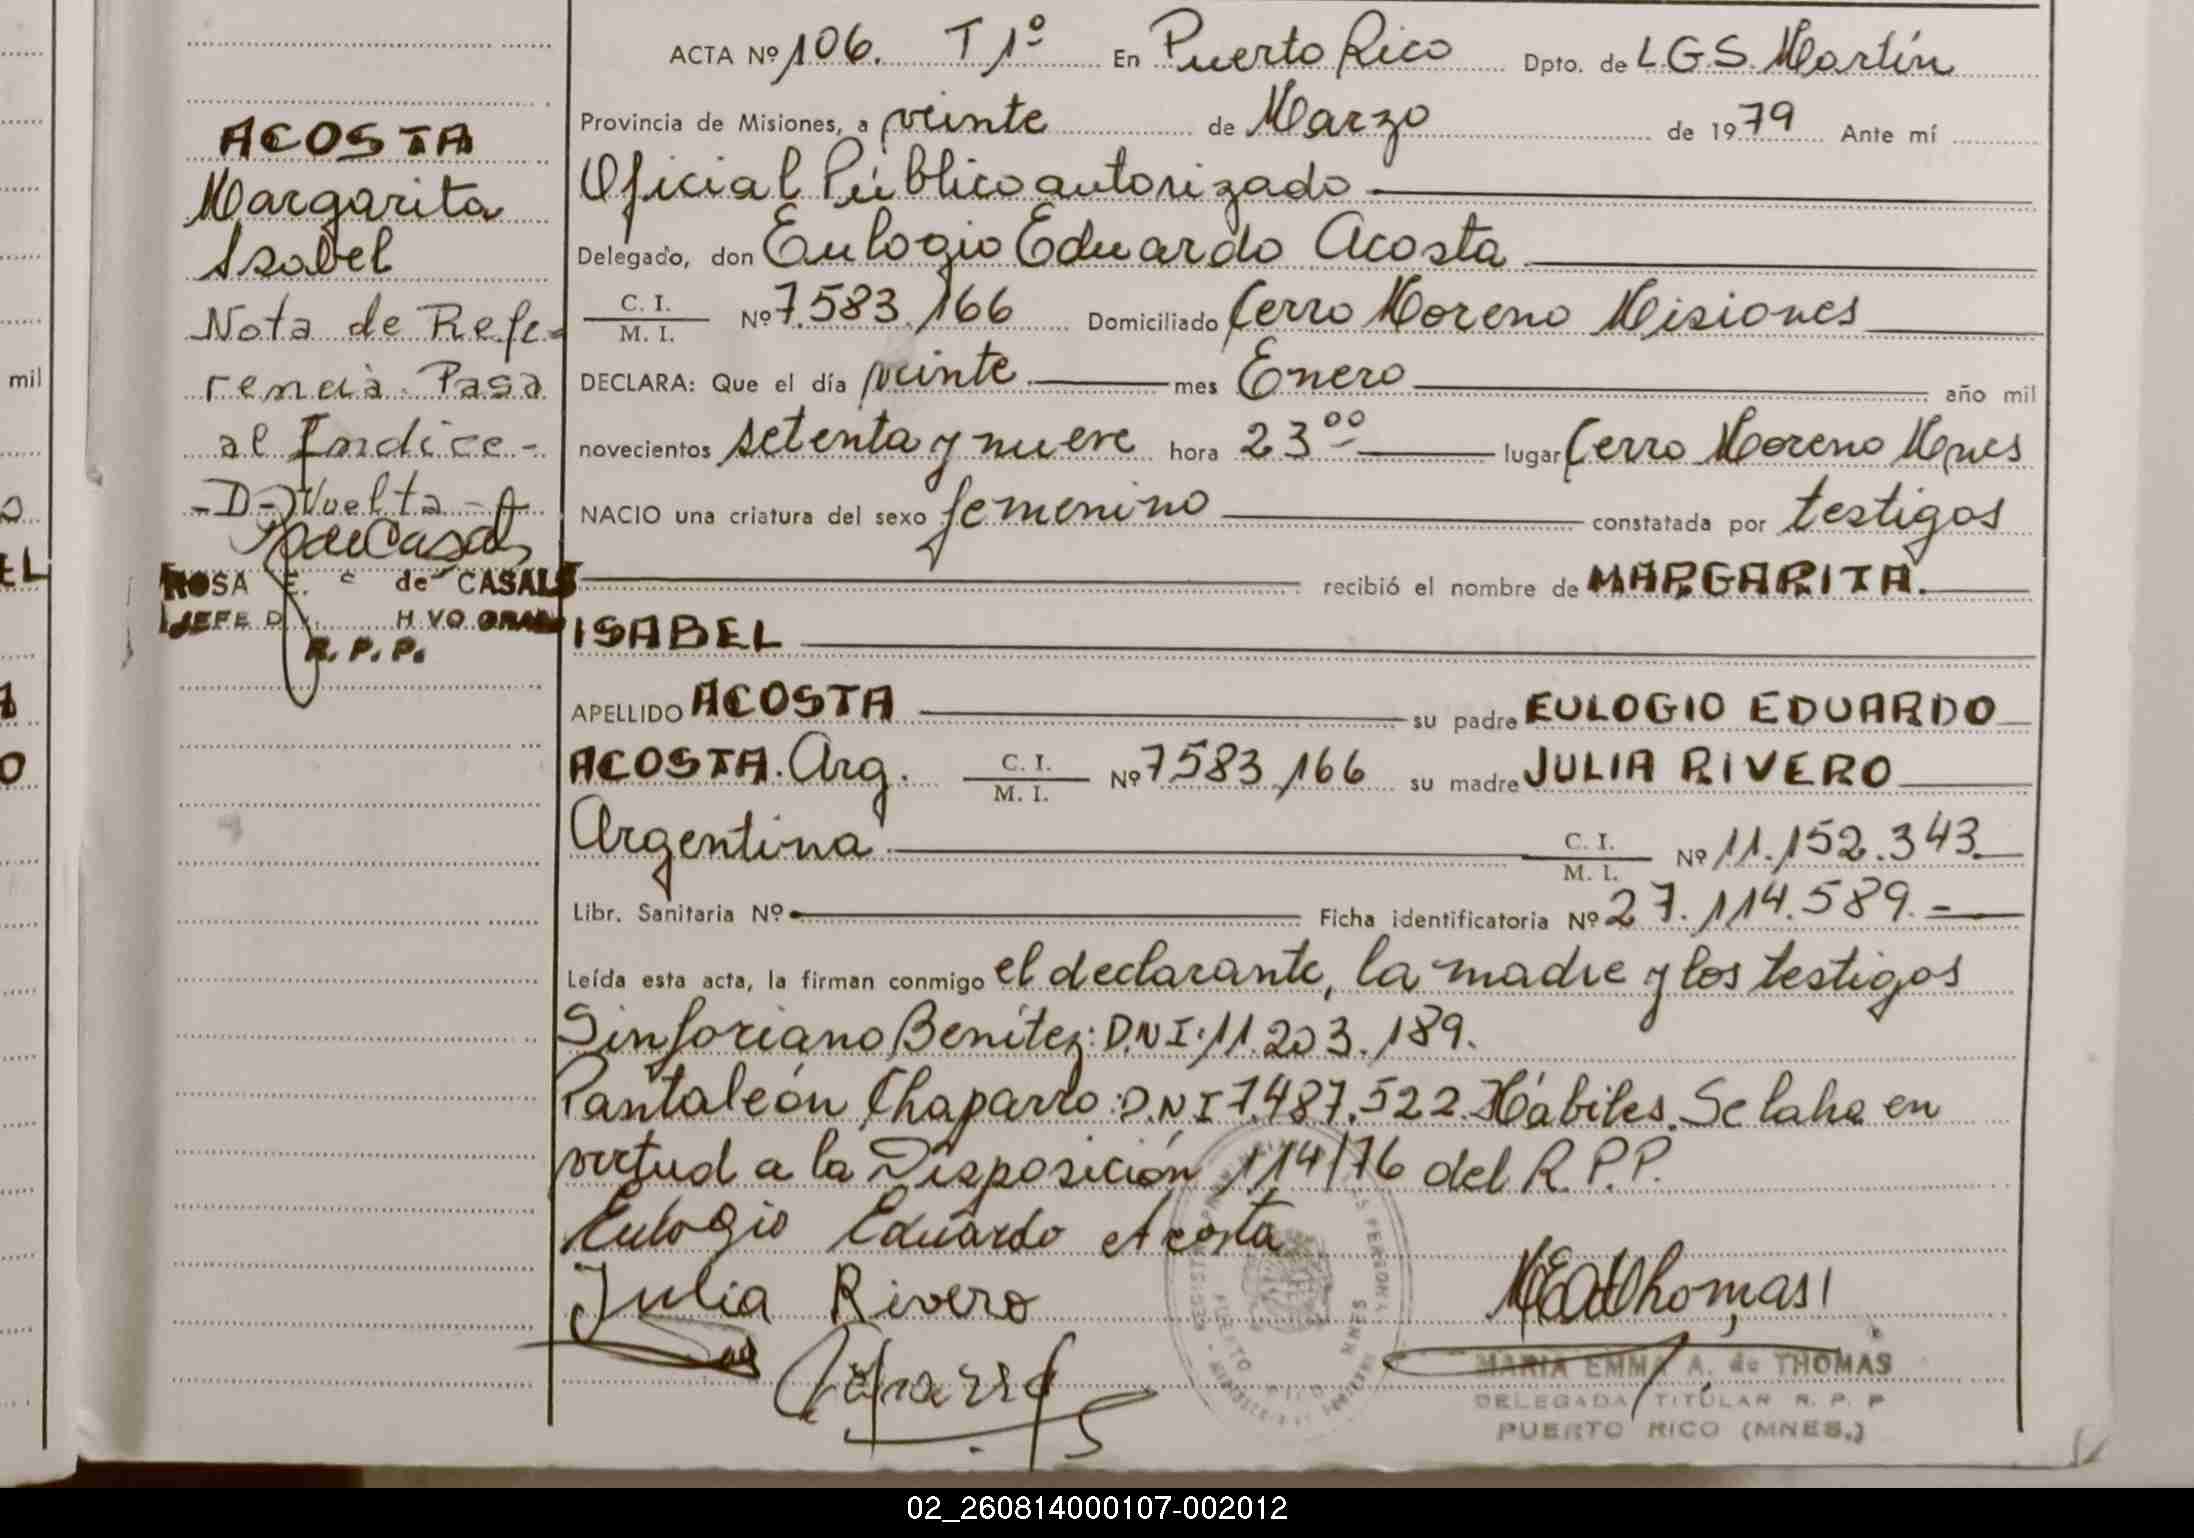 ACTA Nº 106. T 1º En Puerto Rico Dpto. de L.G.S. Martín
Provincia de Misiones, a veinte de Marzo de 1979 Ante mí
Oficial Público autorizado
Delegado, don Eulogio Eduardo Acosta
C. I.
M. I.
Nº 7.583.166 Domiciliado Cerro Moreno Misiones
DECLARA: Que el día veinte mes Enero año mil
novecientos setenta y nueve hora 23⁰⁰ lugar Cerro Moreno Mnes
NACIO una criatura del sexo femenino constatada por testigos
recibió el nombre de MARGARITA.
ISABEL
APELLIDO ACOSTA su padre EULOGIO EDUARDO
ACOSTA. Arg. C. I. M. I. Nº 7583.166 su madre JULIA RIVERO
Argentina C. I. M. I. Nº 11.152.343
Libr. Sanitaria Nº Ficha identificatoria Nº 27.114.589.-
Leída esta acta, la firman conmigo el declarante, la madre y los testigos
Sinforiano Benítez: D.N.I: 11.203.189.
Pantaleón Chaparro: D.N.I 7.487.522. Hábiles. Se labra en
virtud a la Disposición 114/76 del R.P.P.
Eulogio Eduardo Acosta
Julia Rivero
MARIA EMMA A. de THOMAS
DELEGADA TITULAR R. P. P
PUERTO RICO (MNES.)
ACOSTA
Margarita
Isabel
Nota de Refe-
rencia. Pasa
al Indice-
-D-Vuelta-
ROSA E. C de CASALS
R. P. P.
mil
EL
02_260814000107-002012